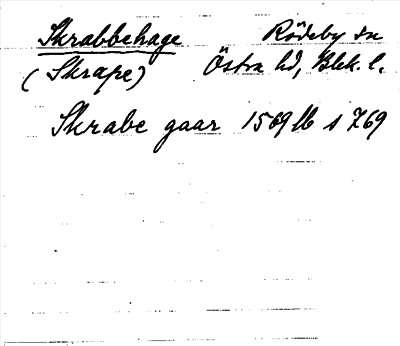 Skrabbehage Rödeby sn
(Skrape) Östra hd, Blek. l.
Skrabe gaar 1569 lb s 769